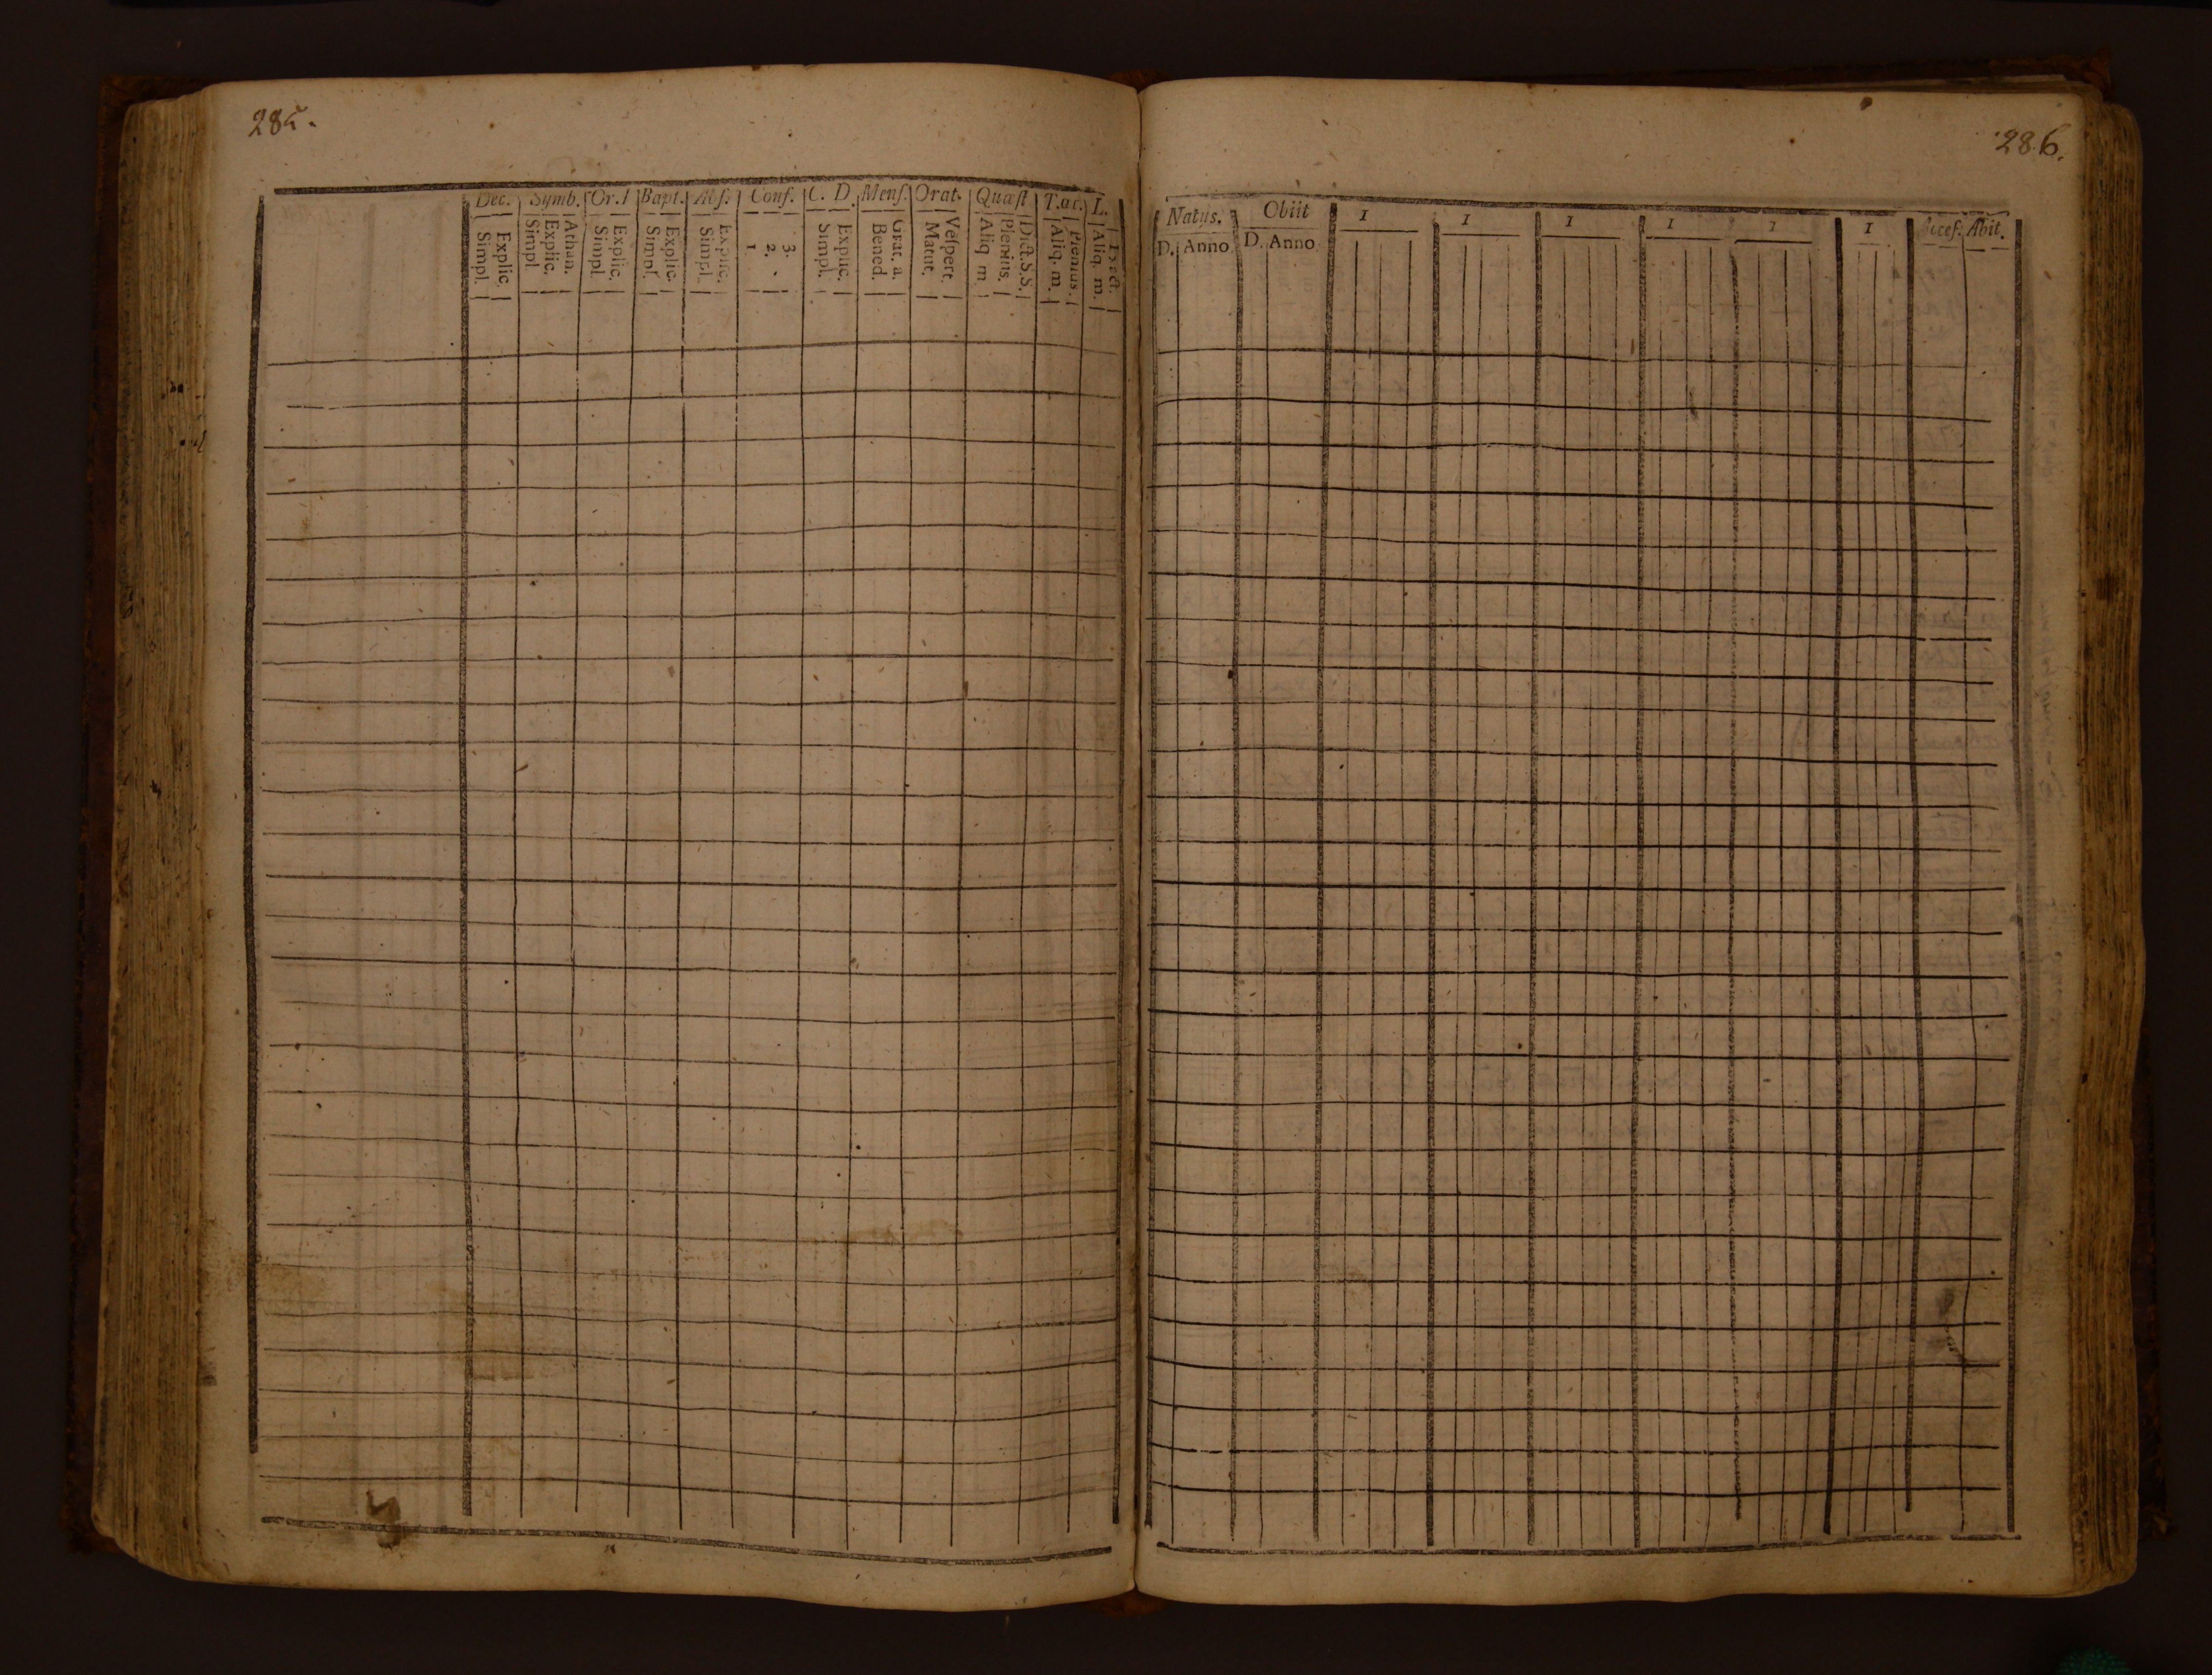 285.
Dec. Symb. Or. Bapt. Abſ. Conf. C. D. Menſ. Orat. Quæſt T.œc. L.
Simpl. Explic. Simpl Explic. Athan. Simpl. Explic. Simpl. Explic. Simpl. Explic. 1 2. 3. Simpl. Explic. Bened. Grat. a. Matut. Veſpert. Aliq m Plenius. Dict.S.S. Aliq. m. Plenius. Aliq. m.
286.
Natus. Obiit 1 1 1 1 1 1 Acceſ. Abit.
D. Anno D. Anno